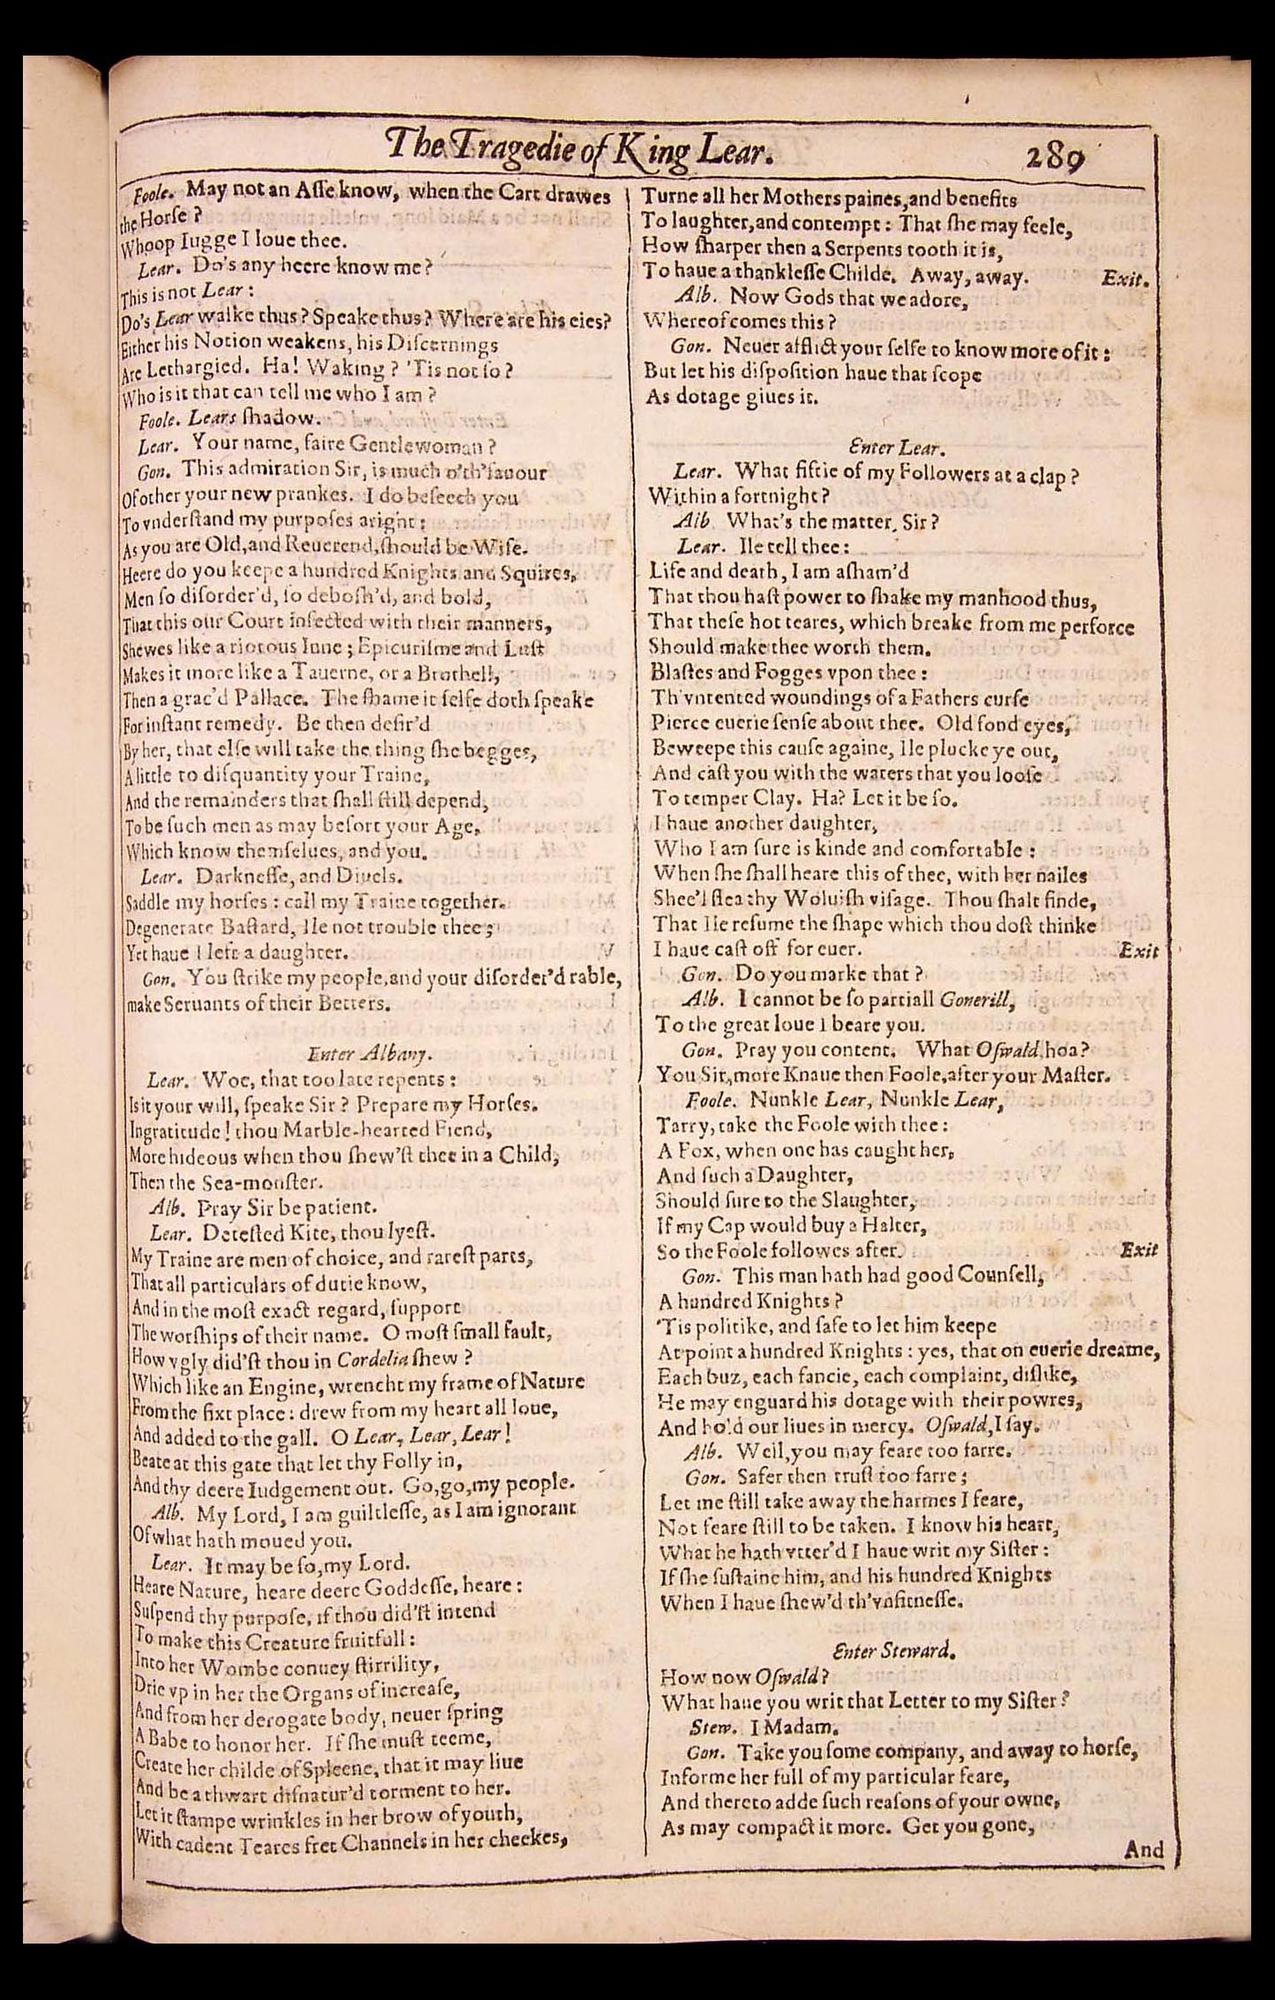 The Tragedie of King Lear. 289
Foole. May not an Asse know, when the Cart drawes
the Horse ?
Whoop Iugge I loue thee.
Lear. Do's any heere know me ?
This is not Lear :
Do's Lear walke thus ? Speake thus ? Where are his eies?
Either his Notion weakens, his Discernings
Are Lethargied. Ha! Waking ? 'Tis not so ?
Who is it that can tell me who I am ?
Foole. Lears shadow.
Lear. Your name, faire Gentlewoman ?
Gon. This admiration Sir, is much o'th'sauour
Of other your new prankes. I do beseech you
To vnderstand my purposes aright :
As you are Old, and Reuerend, should be Wise.
Heere do you keepe a hundred Knights and Squires,
Men so disorder'd, so debosh'd, and bold,
That this our Court infected with their manners,
Shewes like a riotous Inne ; Epicurisme and Lust
Makes it more like a Tauerne, or a Brothell,
Then a grac'd Pallace. The shame it selfe doth speake
For instant remedy. Be then desir'd
By her, that else will take the thing she begges,
A little to disquantity your Traine,
And the remainders that shall still depend,
To be such men as may besort your Age,
Which know themselues, and you.
Lear. Darknesse, and Diuels.
Saddle my horses : call my Traine together.
Degenerate Bastard, Ile not trouble thee ;
Yet haue I left a daughter.
Gon. You strike my people, and your disorder'd rable,
make Seruants of their Betters.
Enter Albany.
Lear. Woe, that too late repents :
Is it your will, speake Sir ? Prepare my Horses.
Ingratitude ! thou Marble-hearted Fiend,
More hideous when thou shew'st thee in a Child,
Then the Sea-monster.
Alb. Pray Sir be patient.
Lear. Detested Kite, thou lyest.
My Traine are men of choice, and rarest parts,
That all particulars of dutie know,
And in the most exact regard, support
The worships of their name. O most small fault,
How vgly did'st thou in Cordelia shew ?
Which like an Engine, wrencht my frame of Nature
From the fixt place : drew from my heart all loue,
And added to the gall. O Lear, Lear, Lear !
Beate at this gate that let thy Folly in,
And thy deere Iudgement out. Go, go, my people.
Alb. My Lord, I am guiltlesse, as I am ignorant
Of what hath moued you.
Lear. It may be so, my Lord.
Heare Nature, heare deere Goddesse, heare :
Suspend thy purpose, if thou did'st intend
To make this Creature fruitfull :
Into her Wombe conuey stirrility,
Drie vp in her the Organs of increase,
And from her derogate body, neuer spring
A Babe to honor her. If she must teeme,
Create her childe of Spleene, that it may liue
And be a thwart disnatur'd torment to her.
Let it stampe wrinkles in her brow of youth,
With cadent Teares fret Channels in her cheekes,
Turne all her Mothers paines, and benefits
To laughter, and contempt : That she may feele,
How sharper then a Serpents tooth it is,
To haue a thanklesse Childe. Away, away. Exit.
Alb. Now Gods that we adore,
Whereof comes this ?
Gon. Neuer afflict your selfe to know more of it :
But let his disposition haue that scope
As dotage giues it.
Enter Lear.
Lear. What fiftie of my Followers at a clap ?
Within a fortnight ?
Alb What's the matter, Sir ?
Lear. Ile tell thee :
Life and death, I am asham'd
That thou hast power to shake my manhood thus,
That these hot teares, which breake from me perforce
Should make thee worth them.
Blastes and Fogges vpon thee :
Th'vntented woundings of a Fathers curse
Pierce euerie sense about thee. Old fond eyes,
Beweepe this cause againe, Ile plucke ye out,
And cast you with the waters that you loose
To temper Clay. Ha? Let it be so.
I haue another daughter,
Who I am sure is kinde and comfortable :
When she shall heare this of thee, with her nailes
Shee'l flea thy Woluish visage. Thou shalt finde,
That Ile resume the shape which thou dost thinke
I haue cast off for euer. Exit
Gon. Do you marke that ?
Alb. I cannot be so partiall Gonerill,
To the great loue I beare you.
Gon. Pray you content. What Oswald, hoa?
You Sir, more Knaue then Foole, after your Master.
Foole. Nunkle Lear, Nunkle Lear,
Tarry, take the Foole with thee :
A Fox, when one has caught her,
And such a Daughter,
Should sure to the Slaughter,
If my Cap would buy a Halter,
So the Foole followes after. Exit
Gon. This man hath had good Counsell,
A hundred Knights ?
'Tis politike, and safe to let him keepe
At point a hundred Knights : yes, that on euerie dreame,
Each buz, each fancie, each complaint, dislike,
He may enguard his dotage with their powres,
And hold our liues in mercy. Oswald, I say.
Alb. Well, you may feare too farre.
Gon. Safer then trust too farre ;
Let me still take away the harmes I feare,
Not feare still to be taken. I know his heart,
What he hath vtter'd I haue writ my Sister :
If she sustaine him, and his hundred Knights
When I haue shew'd th'vnfitnesse.
Enter Steward.
How now Oswald ?
What haue you writ that Letter to my Sister ?
Stew. I Madam.
Gon. Take you some company, and away to horse,
Informe her full of my particular feare,
And thereto adde such reasons of your owne,
As may compact it more. Get you gone,
And